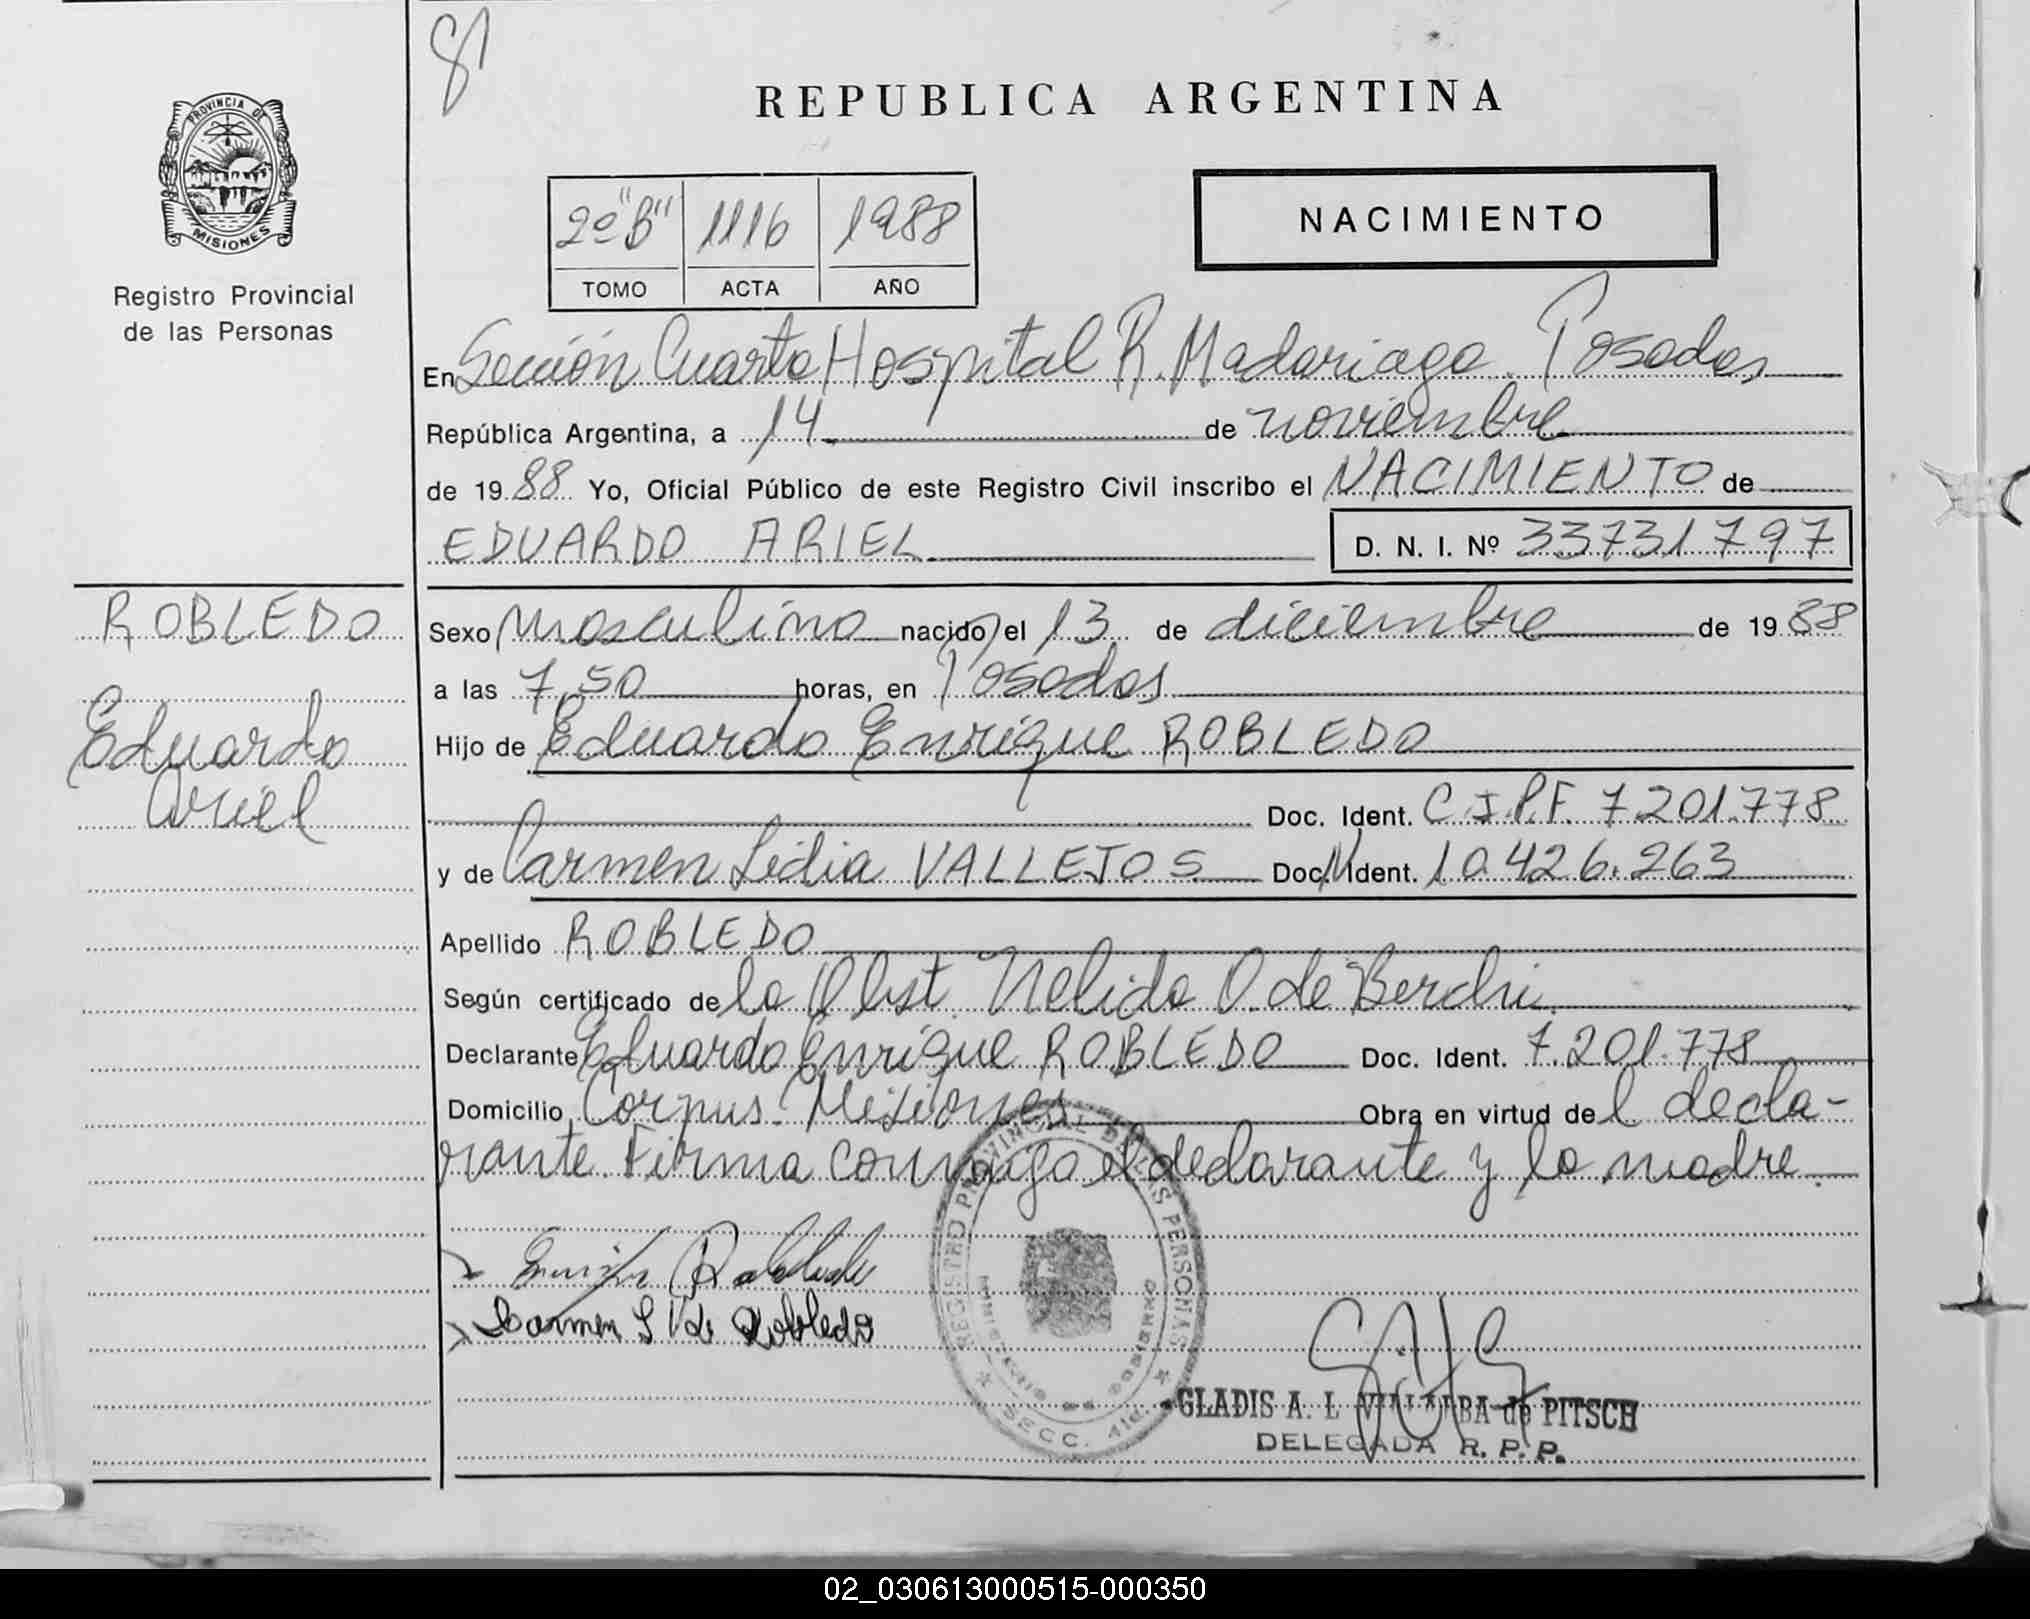 81
REPUBLICA ARGENTINA
PROVINCIA DE
MISIONES
Registro Provincial
de las Personas
2º "B" 1116 1988
TOMO ACTA AÑO
NACIMIENTO
En Sección Cuarta Hospital R. Madariaga. Posadas
República Argentina, a 14 de noviembre
de 19 88 Yo, Oficial Público de este Registro Civil inscribo el NACIMIENTO de
EDUARDO ARIEL D. N. I. Nº 33731797
ROBLEDO
Eduardo
Ariel
Sexo Masculino nacido el 13 de diciembre de 19 88
a las 7,50 horas, en Posadas
Hijo de Eduardo Enrique ROBLEDO
Doc. Ident. C.I.P.F. 7.201.778
y de Carmen Lidia VALLEJOS Doc. Ident. 10.426.263
Apellido ROBLEDO
Según certificado de la Obst. Nelida O. de Berchi.
Declarante Eduardo Enrique ROBLEDO Doc. Ident. 7.201.778
Domicilio Corpus. Misiones Obra en virtud de l decla-
rante. Firma conmigo el declarante y la madre.
Robledo
Carmen L V de Robledo
REGISTRO PROVINCIAL DE LAS PERSONAS
MINISTERIO DE GOBIERNO
SECC. 4ta.
GLADIS A. L. VILLALBA de PITSCH
DELEGADA R. P. P.
02_030613000515-000350